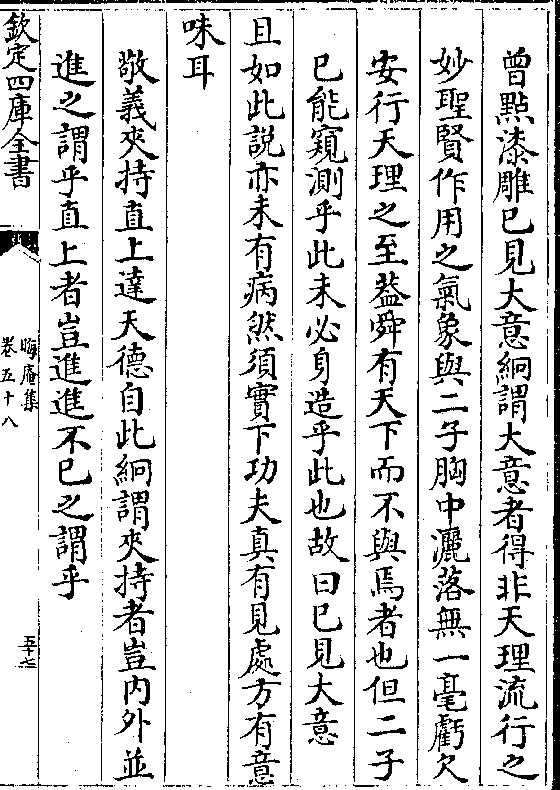 曾點漆雕已見大意絅謂大意者得非天理流行之
妙聖賢作用之氣象與二子胸中灑落無一毫虧欠
安行天理之至葢舜有天下而不與焉者也但二子
已能窺測乎此未必身造乎此也故曰已見大意
且如此説亦未有病然須實下功夫真有見處方有意
味耳
敬義夾持直上達天德自此絅謂夾持者豈内外並
進之謂乎直上者豈進進不已之謂乎
欽定四庫全書
晦庵集
卷五十八
五十七